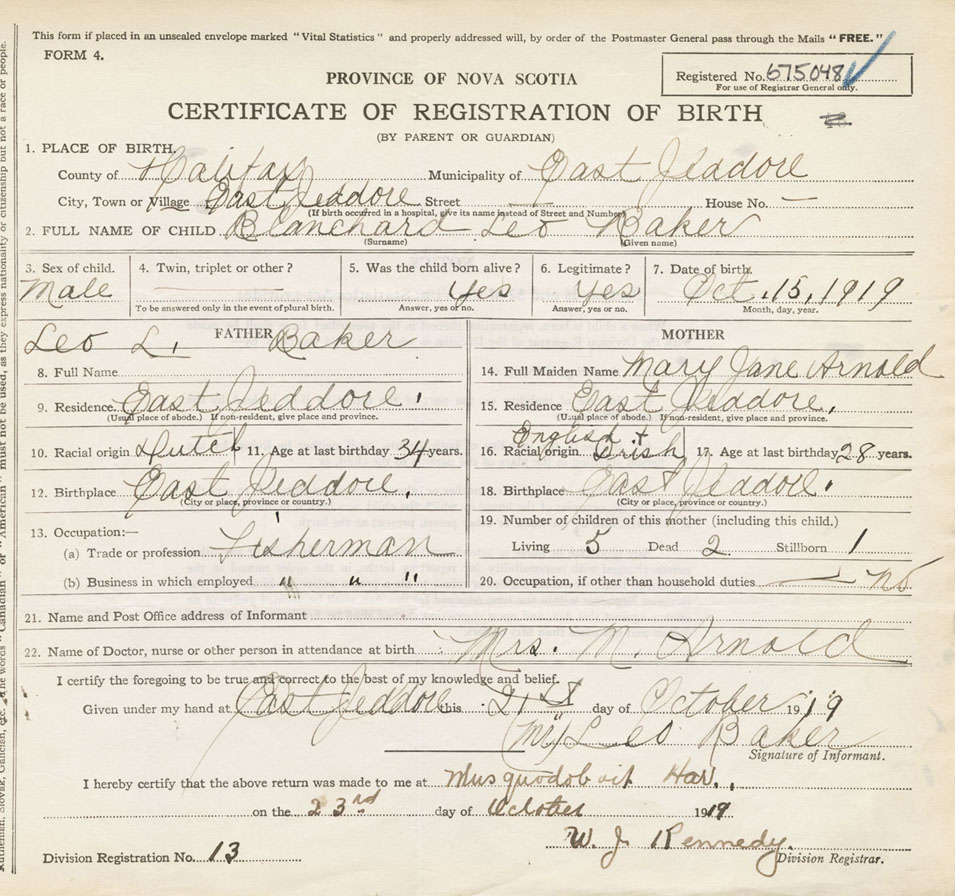 This form if placed in an unsealed envelope marked "Vital Statistics" and properly addressed will, by order of the Postmaster General pass through the Mails "FREE."
FORM 4.
Registered No. 675048
For use of Registrar General only.
PROVINCE OF NOVA SCOTIA
CERTIFICATE OF REGISTRATION OF BIRTH
(BY PARENT OR GUARDIAN)
1. PLACE OF BIRTH.
County of Halifax Municipality of East Jeddore
City, Town or Village East Jeddore Street — House No. —
(If birth occurred in a hospital, give its name instead of Street and Number)
2. FULL NAME OF CHILD Blanchard Leo Baker
(Surname) (Given name)
3. Sex of child. 4. Twin, triplet or other? 5. Was the child born alive? 6. Legitimate? 7. Date of birth.
Male — Yes Yes Oct. 15, 1919
To be answered only in the event of plural birth. Answer, yes or no. Answer, yes or no. Month, day, year.
FATHER
Leo L. Baker
8. Full Name
9. Residence East Jeddore.
(Usual place of abode.) If non-resident, give place and province.
10. Racial origin Dutch 11. Age at last birthday 34 years.
12. Birthplace East Jeddore.
(City or place, province or country.)
13. Occupation:—
(a) Trade or profession Fisherman
(b) Business in which employed " " "
MOTHER
14. Full Maiden Name Mary Jane Arnold
15. Residence East Jeddore.
(Usual place of abode.) If non-resident, give place and province.
16. Racial origin English + Irish 17. Age at last birthday 28 years.
18. Birthplace East Jeddore.
(City or place, province or country.)
19. Number of children of this mother (including this child.)
Living 5 Dead 2 Stillborn 1
20. Occupation, if other than household duties — no
21. Name and Post Office address of Informant
22. Name of Doctor, nurse or other person in attendance at birth Mrs. M. Arnold
I certify the foregoing to be true and correct to the best of my knowledge and belief.
Given under my hand at East Jeddore this 21st day of October 1919
Leo Baker
Signature of Informant.
I hereby certify that the above return was made to me at Musquodoboit Har.,
on the 23rd day of October 1919
W. J. Kennedy.
Division Registrar.
Division Registration No. 13